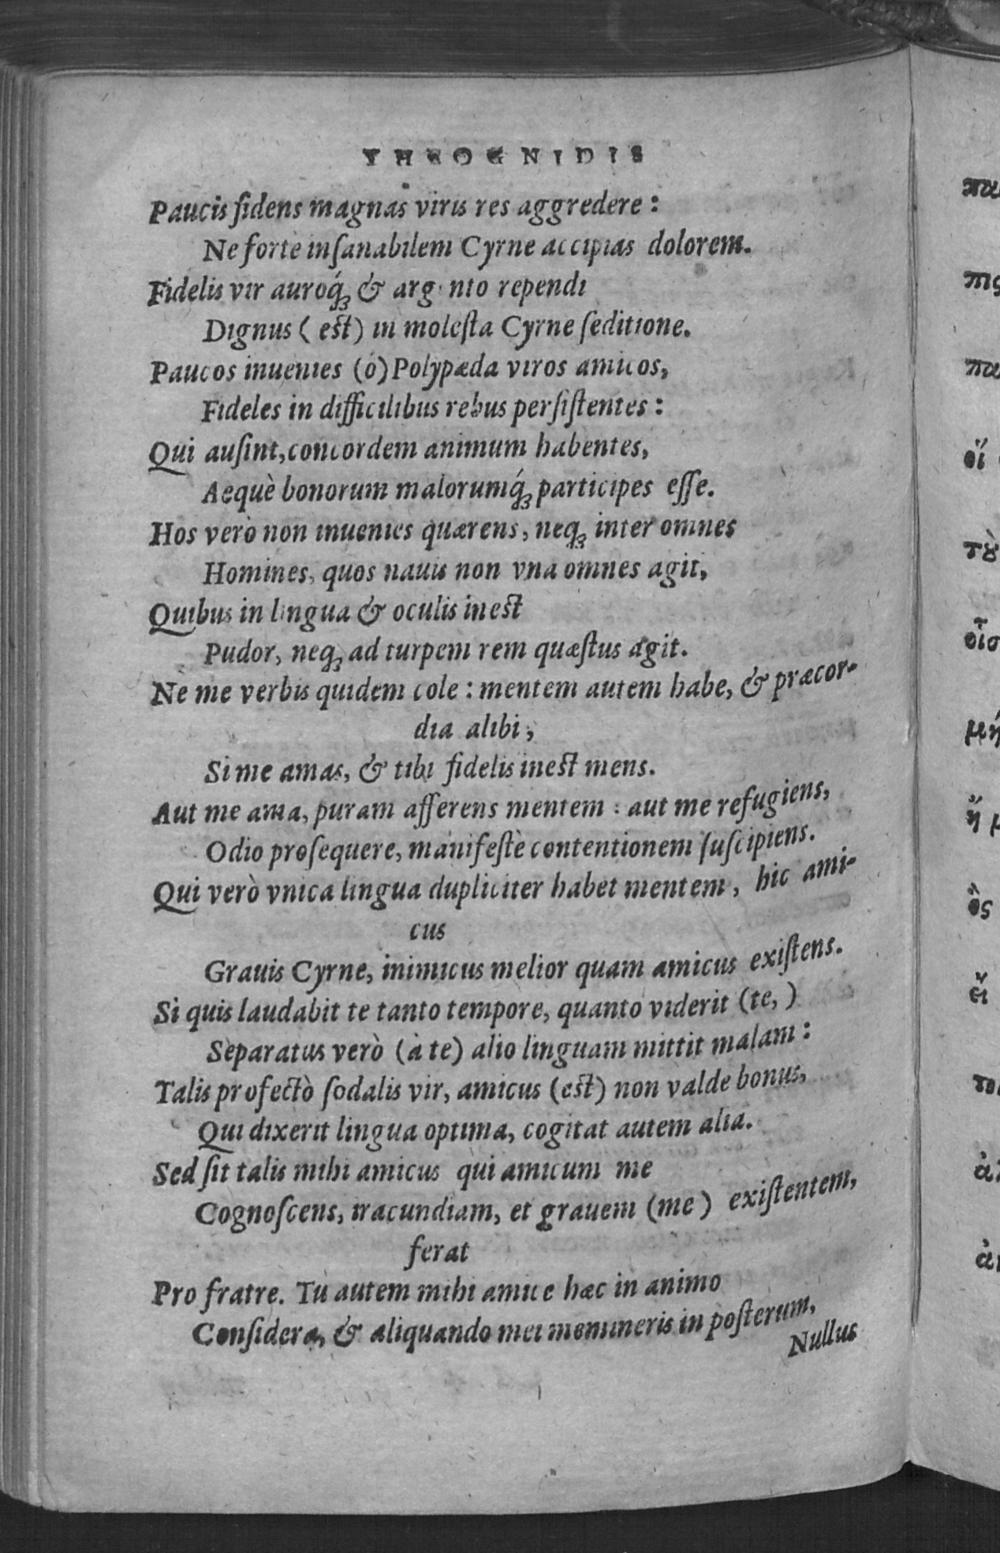 THEOGNIDIS
Paucis fidens magnas viris res aggredere :
Ne forte inſanabilem Cyrne accipias dolorem.
Fidelis vir auroq́; & arg nto rependi
Dignus ( eſt ) in moleſta Cyrne ſeditione.
Paucos inuenies (ô) Polypæda viros amicos,
Fideles in difficilibus rebus perſiſtentes :
Qui auſint, concordem animum habentes,
Aequè bonorum malorumq́; participes eſſe.
Hos verò non inuenies quærens, neq; inter omnes
Homines, quos nauis non vna omnes agit,
Quibus in lingua & oculis ineſt
Pudor, neq; ad turpem rem quæſtus agit.
Ne me verbis quidem cole : mentem autem habe, & præcor-
dia alibi ;
Si me amas, & tibi fidelis ineſt mens.
Aut me ama, puram afferens mentem : aut me refugiens,
Odio proſequere, manifeſtè contentionem ſuſcipiens.
Qui verò vnica lingua dupliciter habet mentem, hic ami-
cus
Grauis Cyrne, inimicus melior quam amicus exiſtens.
Si quis laudabit te tanto tempore, quanto viderit (te, )
Separatus verò (à te) alio linguam mittit malam :
Talis profectò ſodalis vir, amicus (eſt) non valde bonus,
Qui dixerit lingua optima, cogitat autem alia.
Sed ſit talis mihi amicus qui amicum me
Cognoſcens, iracundiam, et grauem (me ) exiſtentem,
ferat
Pro fratre. Tu autem mihi amice hæc in animo
Conſidera, & aliquando mei memineris in poſterum,
Nullus
πα
πις
πα
οἵ
τὸ
οἷσ
μή
ἢ μ
ὃς
εἴ
τοι
ἀλ
ἀν